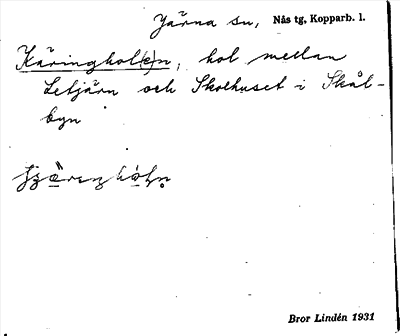 Järna sn, Nås tg, Kopparb. l.
Käringhol(e)n, hol mellan
Letjärn och Skolhuset i Skål-
byn
Bror Lindén 1931